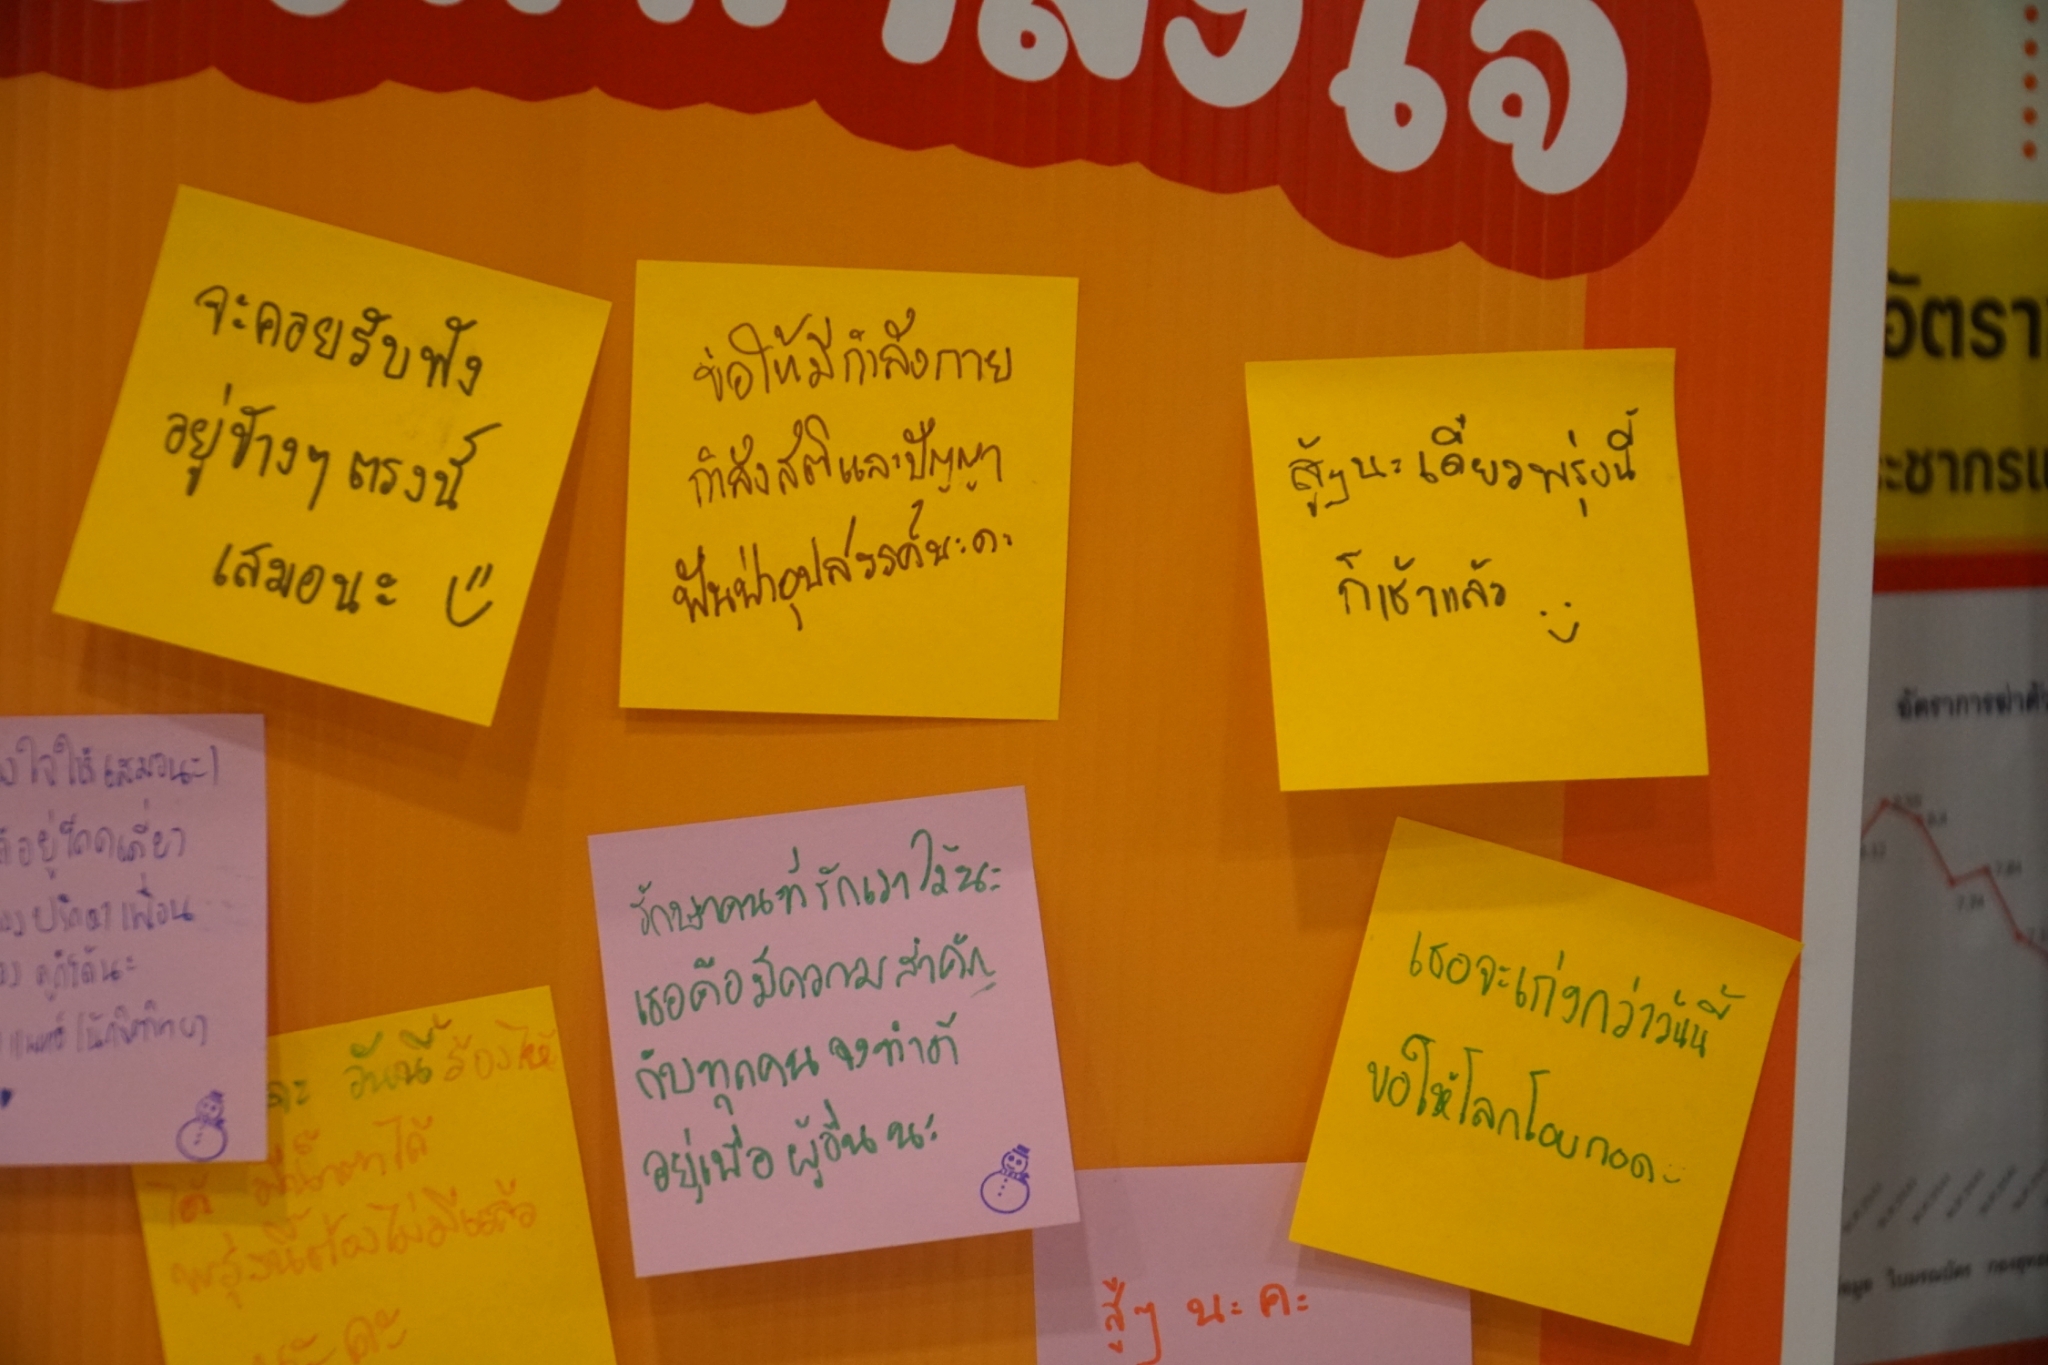 กำลังใจ
จะคอยรับฟัง
อยู่ข้างๆ ตรงนี้
เสมอนะ
ขอให้มีกำลังกาย
กำลังสติและปัญญา
ฟันฝ่าอุปสรรค์นะคะ
สู้ๆนะ เดี๋ยวพรุ่งนี้
ก็เช้าแล้ว
ใจให้เสมอนะ
อยู่โดดเดี่ยว
ปรึกษา เพื่อน
ก็ได้นะ
รักษาคนที่รักเราไว้นะ
เธอคือมีความสำคัญ
กับทุกคน จงทำดี
อยู่เพื่อ ผู้อื่น นะ
เธอจะเก่งกว่าวันนี้
ขอให้โลกโอบกอดะ
คะ วันนี้ ร้องไห้
ได้ มีน้ำตาได้
พรุ่งนี้ต้องไม่มี
นะคะ
สู้ๆ นะคะ
อัตรา
ะชากรแ
อัตราการฆ่าตัว